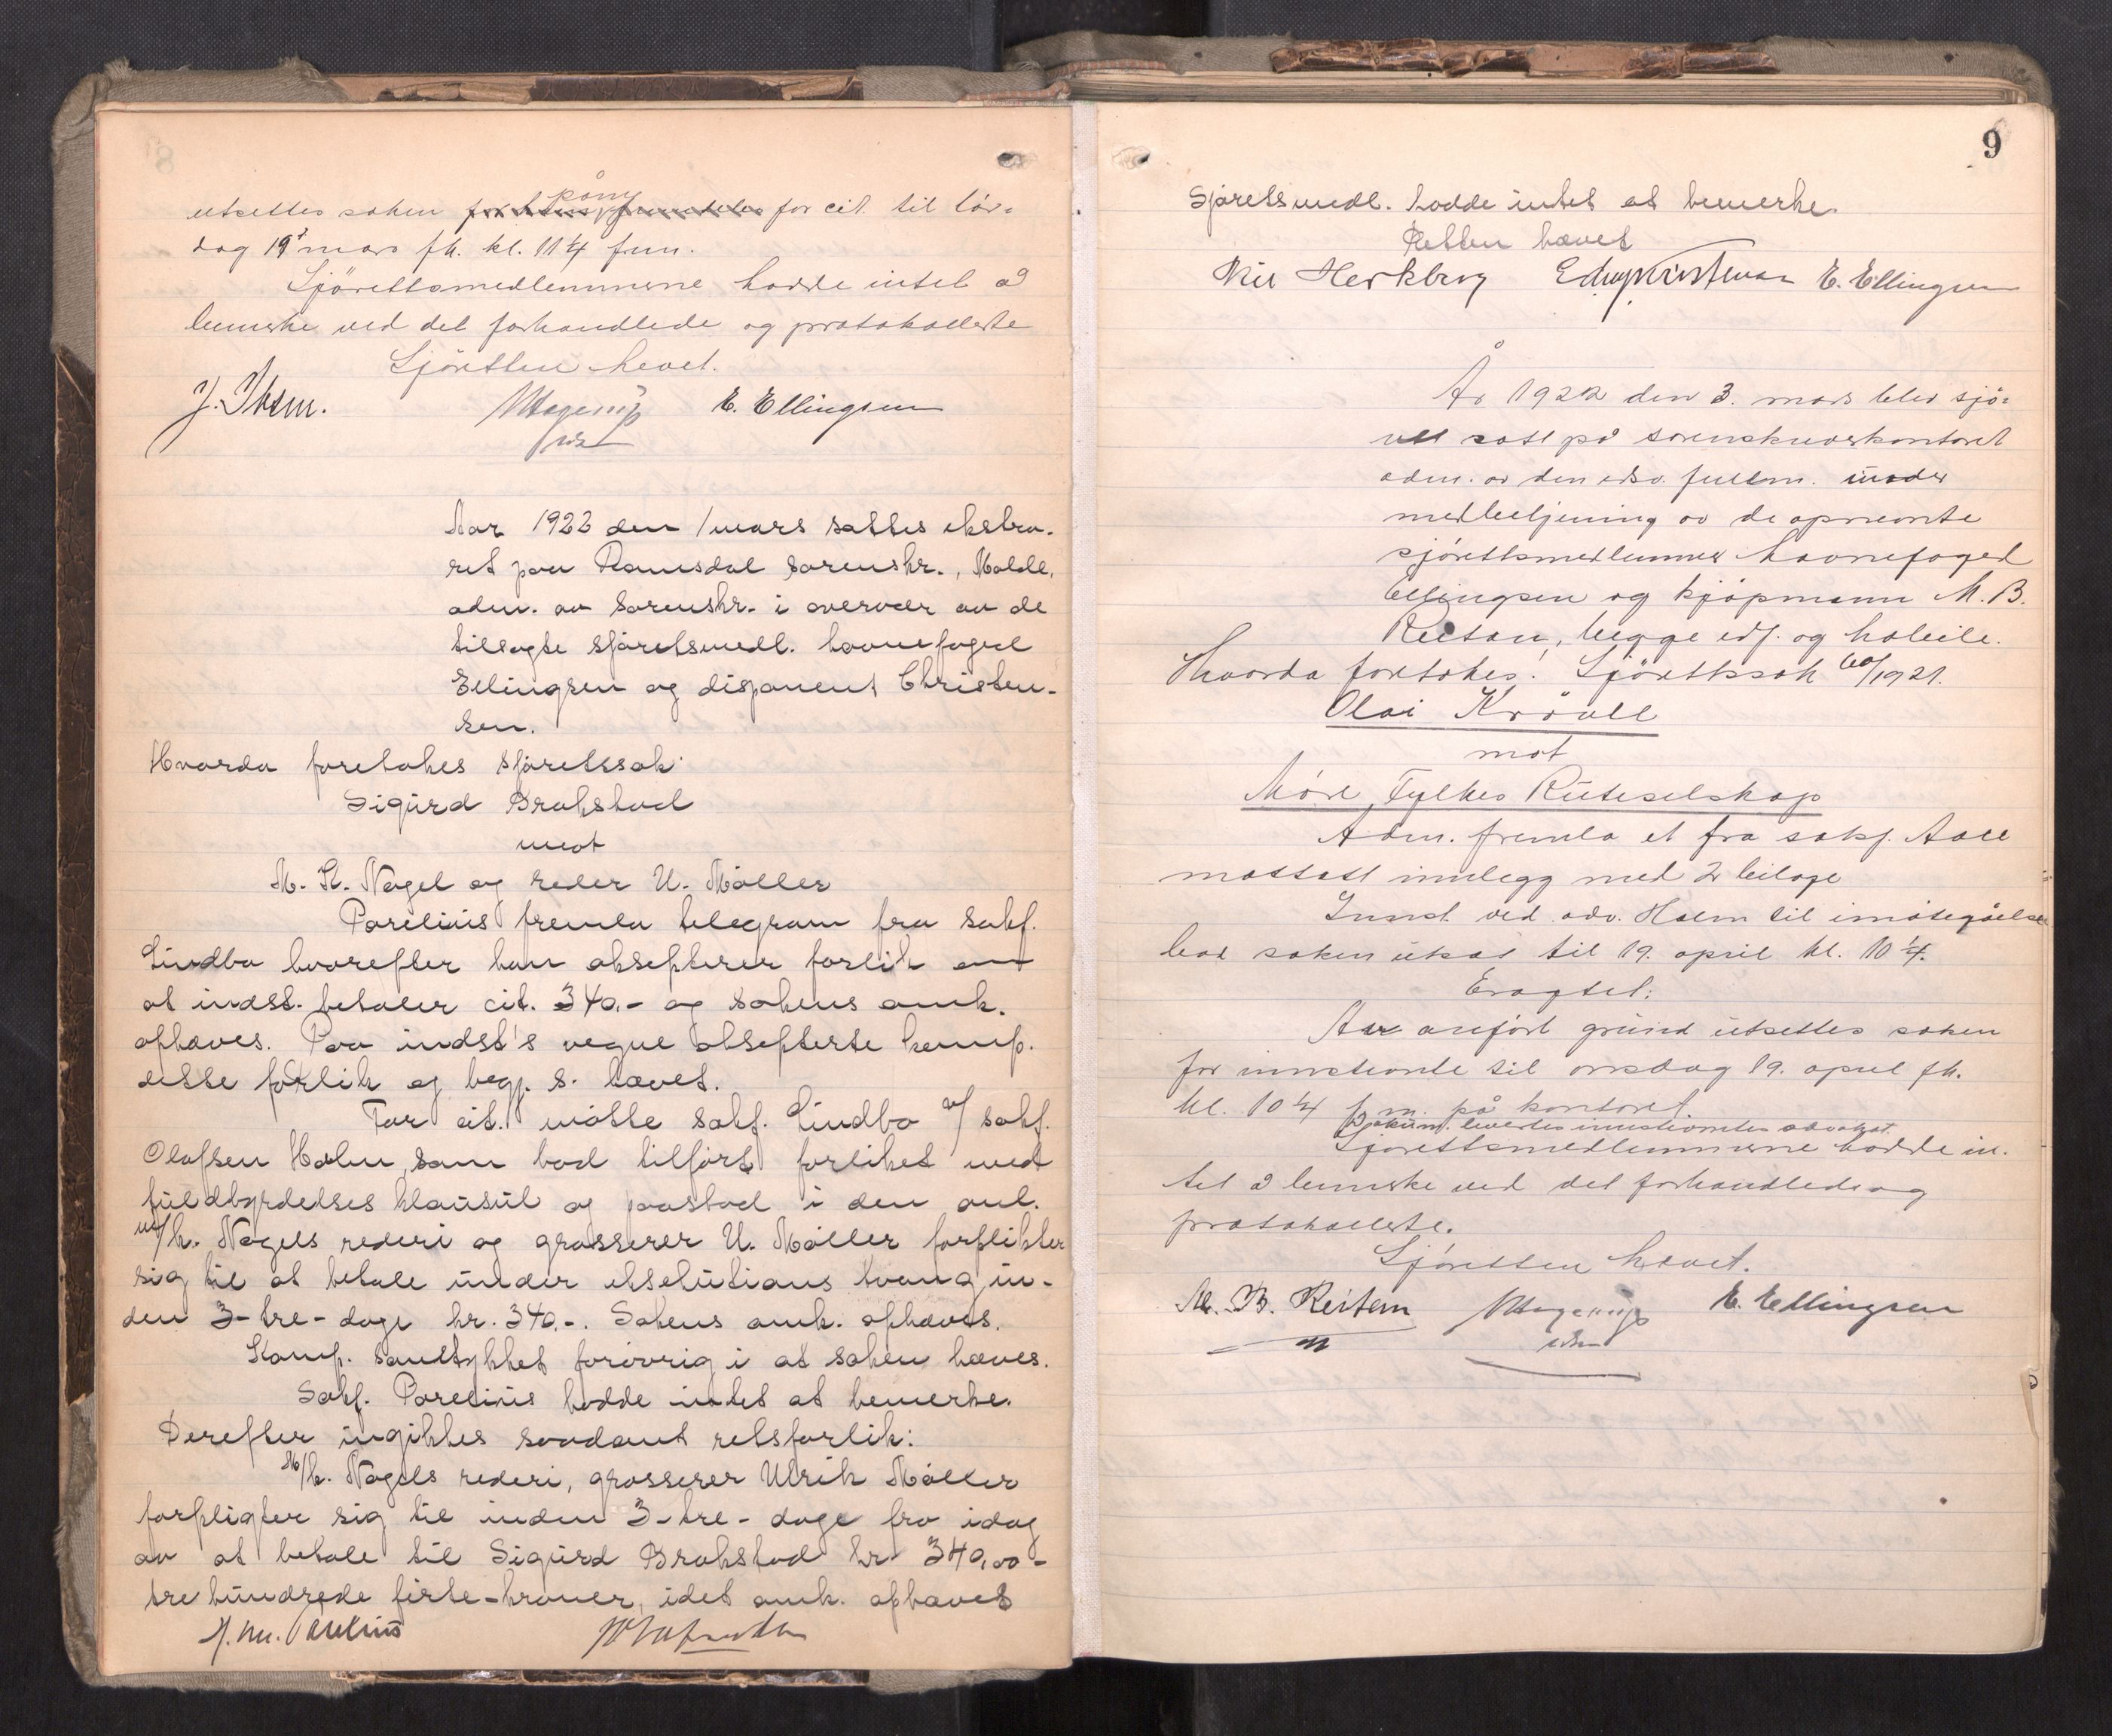 utsettes saken påny for cit. til lör-
dag 19' mars fk. kl. 11 1/4 fm.
Sjörettsmedlemmerne hadde intet å
bemerke ved det forhandlede og protokollerte
Sjöretten hevet.
E. Ellingsen
Aar 1922 den 1 mars sattes ekstra-
ret paa Romsdal sorenskr., Molde,
adm. av sorenskr. i overvær av de
tilsagte sjøretsmedl. havnefoged
Ellingsen og disponent Christen-
sen.
Hvorda foretokes sjøretssak:
Sigurd Brakstad
mot
M. K. Nagel og reder U. Møller
Parelius fremla telegram fra sakf.
Lindbo hvorefter han aksepterer forlik om
at indst. betaler cit. 340.- og sakens omk.
ophæves. Paa indst's vegne aksepterte komp.
dette forlik og begj. s. hævet.
For cit. møtte sakf. Lindbo v/ sakf.
Olafsen Holm, som bad tilført forliket med
fuldbyrdelses klausul og paastod i den anl.
M/k. Nagels rederi og grosserer U. Møller forplikter
sig til at betale under eksekutions tvang in-
den 3-tre-dage kr. 340.-. Sakens omk. ophæves.
Komp. samtykket forøvrig i at saken hæves.
Sakf. Parelius hadde intet at bemerke.
Derefter ingikkes saadant retsforlik:
M/k. Nagels rederi, grosserer Ulrik Møller
forpligter sig til inden 3-tre-dage fra idag
av at betale til Sigurd Brakstad kr 340,00-
tre hundrede firte-kroner, idet omk. ophæves
Parelius
9
Sjøretsmedl. hadde intet at bemerke.
Retten hævet
E. Ellingsen
År 1922 den 3. mars blev sjö-
rett satt på sorenskriverkontoret
adm. av den edsv. fullm. under
medbetjening av de opnevnte
sjörettsmedlemmer havnefoged
Ellingsen og kjöpmann M. B.
Reitan, begge edf. og habile.
Hvorda foretokes: Sjörettssak 60/1921.
Olai Krövll
mot
Möre Fylkes Ruteselskap
Adm. fremla et fra sakf. Aall
mottatt innlegg med 2 bilage
Innst. ved adv. Holm til imötegåelse
bad saken utsat til 19. april kl. 10 1/4.
Eragtet:
Av anfört grund utsettes saken
for innstevnte til onsdag 19. april fk.
kl. 10 1/4 fm. på kontoret.
Dokum. levertes innstevntes advokat.
Sjörettsmedlemmerne hadde in-
tet å bemerke ved det forhandlede og
protokollerte.
Sjöretten hævet.
M. B. Reitan E. Ellingsen